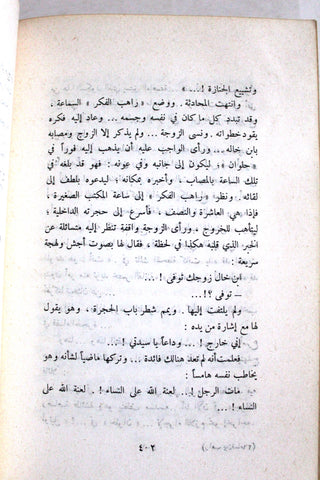 وتشييع الجنازة !... »
وانتهت المحادثة . ووضع « راهب الفكر » السماعة ،
وقد تبدد كل ما كان في نفسه وجسمه ... وعاد إليه فكره
يقود خطواته . ونسى الزوجة ... ولم يذكر إلا الزوج ومصابه
بابن خاله .. ورأى الواجب عليه أن يذهب إليه فوراً في
« حلوان » ؛ ليكون إلى جانبه وفي عونه : فهو قد بلغه في
تلك الساعة بالمصاب ، وأخبره بمكانه ؛ ليدعوه بلطف إلى
لقائه . ونظر « راهب الفكر » إلى ساعة المكتب الصغيرة ،
فإذا هي العاشرة والنصف ، فأسرع إلى حجرته الداخلية ؛
ليتأهب للخروج ، ورأى الزوجة واقفة تنظر إليه متسائلة عن
الخبر الذي قلبه هكذا في لحظة ، فقال لها بصوت أجش ولهجة
سريعة :
ابن خال زوجك توفى !...
– توفى ؟!...
ولم يلتفت إليها . ويمم شطر باب الحجرة ، وهو يقول
لها مع إشارة من يده :
إني خارج !... وداعاً يا سيدتي !...
فعلمت أنه لم تعد هنالك فائدة ... وتركها ماضياً لشأنه وهو
يخاطب نفسه هامساً :
مات الرجل !... لعنة الله على النساء !... لعنة الله على
النساء !...
– ٤٠٢ –